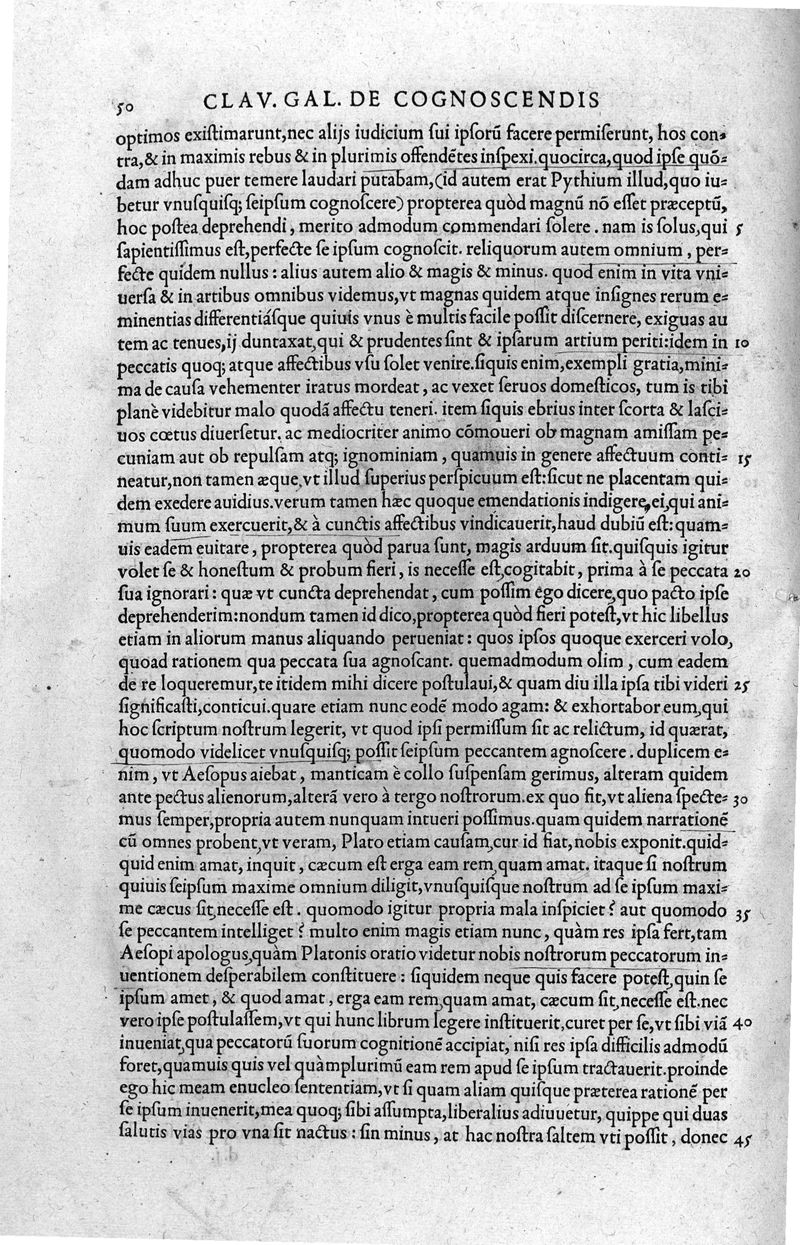 50 CLAV. GAL. DE COGNOSCENDIS
optimos exiſtimarunt, nec alijs iudicium ſui ipſorū facere permiſerunt, hos con-
tra,& in maximis rebus & in plurimis offendētes inſpexi.quocirca,quod ipſe quō-
dam adhuc puer temere laudari putabam,(id autem erat Pythium illud,quo iu-
betur vnuſquiſq; ſeipſum cognoſcere) propterea quòd magnū nō eſſet præceptū,
hoc poſtea deprehendi, merito admodum commendari ſolere. nam is ſolus,qui 5
ſapientiſſimus eſt,perfecte ſe ipſum cognoſcit. reliquorum autem omnium, per-
fecte quidem nullus: alius autem alio & magis & minus. quod enim in vita vni-
uerſa & in artibus omnibus videmus,vt magnas quidem atque inſignes rerum e-
minentias differentiáſque quiuis vnus è multis facile poſſit diſcernere, exiguas au
tem ac tenues,ij duntaxat,qui & prudentes ſint & ipſarum artium periti:idem in 10
peccatis quoq; atque affectibus vſu ſolet venire.ſiquis enim,exempli gratia,mini-
ma de cauſa vehementer iratus mordeat, ac vexet ſeruos domeſticos, tum is tibi
planè videbitur malo quodā affectu teneri. item ſiquis ebrius inter ſcorta & laſci-
uos cœtus diuerſetur. ac mediocriter animo cōmoueri ob magnam amiſſam pe-
cuniam aut ob repulſam atq; ignominiam, quamuis in genere affectuum conti- 15
neatur,non tamen æque,vt illud ſuperius perſpicuum eſt:ſicut ne placentam qui-
dem exedere auidius.verum tamen hæc quoque emendationis indigere,ei,qui ani-
mum ſuum exercuerit,& à cunctis affectibus vindicauerit,haud dubiū eſt: quam-
uis eadem euitare, propterea quòd parua ſunt, magis arduum ſit.quiſquis igitur
volet ſe & honeſtum & probum fieri, is neceſſe eſt,cogitabit, prima à ſe peccata 20
ſua ignorari: quæ vt cuncta deprehendat, cum poſſim ego dicere,quo pacto ipſe
deprehenderim:nondum tamen id dico,propterea quòd fieri poteſt,vt hic libellus
etiam in aliorum manus aliquando perueniat: quos ipſos quoque exerceri volo,
quoad rationem qua peccata ſua agnoſcant. quemadmodum olim, cum eadem
de re loqueremur,te itidem mihi dicere poſtulaui,& quam diu illa ipſa tibi videri 25
ſignificaſti,conticui.quare etiam nunc eodē modo agam: & exhortabor eum,qui
hoc ſcriptum noſtrum legerit, vt quod ipſi permiſſum ſit ac relictum, id quærat,
quomodo videlicet vnuſquiſq; poſſit ſeipſum peccantem agnoſcere. duplicem e-
nim, vt Aeſopus aiebat, manticam è collo ſuſpenſam gerimus, alteram quidem
ante pectus alienorum,alterā vero à tergo noſtrorum.ex quo fit,vt aliena ſpecte- 30
mus ſemper,propria autem nunquam intueri poſſimus.quam quidem narrationē
cū omnes probent,vt veram, Plato etiam cauſam,cur id fiat,nobis exponit.quid-
quid enim amat, inquit, cæcum eſt erga eam rem,quam amat. itaque ſi noſtrum
quiuis ſeipſum maxime omnium diligit,vnuſquiſque noſtrum ad ſe ipſum maxi-
me cæcus ſit,neceſſe eſt. quomodo igitur propria mala inſpiciet? aut quomodo 35
ſe peccantem intelliget? multo enim magis etiam nunc, quàm res ipſa fert,tam
Aeſopi apologus,quàm Platonis oratio videtur nobis noſtrorum peccatorum in-
uentionem deſperabilem conſtituere: ſiquidem neque quis facere poteſt,quin ſe
ipſum amet, & quod amat, erga eam rem,quam amat, cæcum ſit,neceſſe eſt.nec
vero ipſe poſtulaſſem,vt qui hunc librum legere inſtituerit,curet per ſe,vt ſibi viā 40
inueniat,qua peccatorū ſuorum cognitionē accipiat, niſi res ipſa difficilis admodū
foret,quamuis quis vel quàmplurimū eam rem apud ſe ipſum tractauerit.proinde
ego hic meam enucleo ſententiam,vt ſi quam aliam quiſque præterea rationē per
ſe ipſum inuenerit,mea quoq; ſibi aſſumpta,liberalius adiuuetur, quippe qui duas
ſalutis vias pro vna ſit nactus: ſin minus, at hac noſtra ſaltem vti poſſit, donec 45